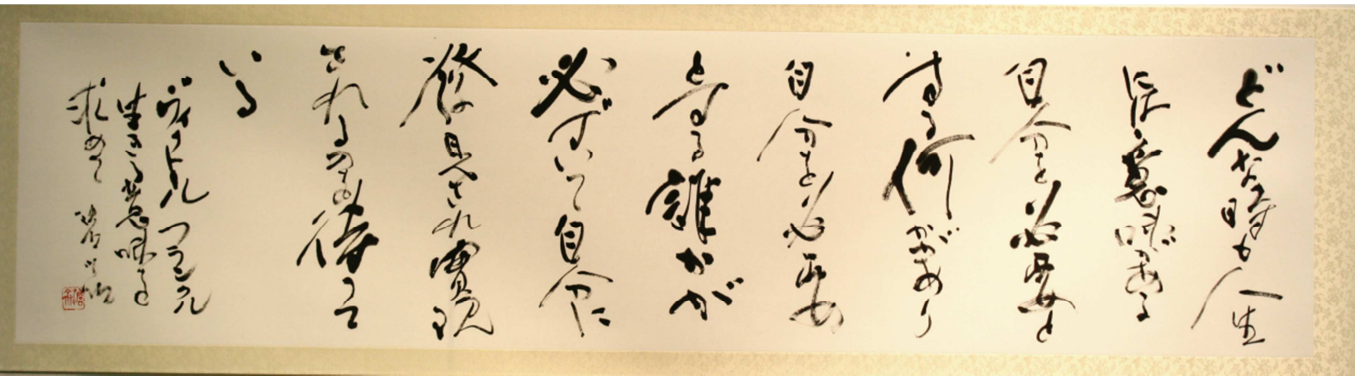 どんな時も人生
には意味がある
自分を必要と
する何かがあり
自分を必要
とする誰かが
必ずいて自分に
発見され実現
されるのを待って
いる
ヴィクトル フランクル
生きる意味を
求めて